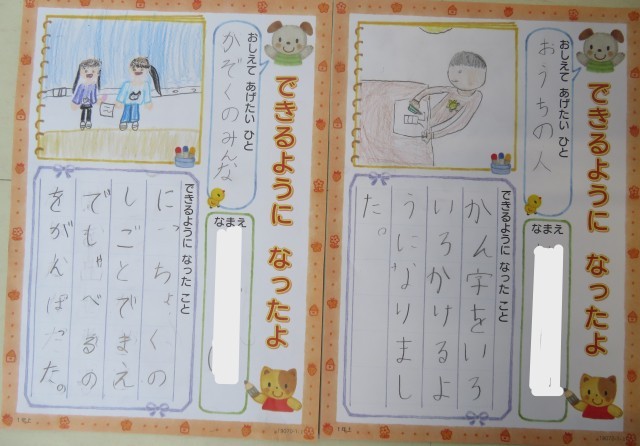 できるように なったよ
なまえ
おしえて あげたい ひと
おうちの人
できるように なった こと
かん字をいろ
いろかけるよ
うになりまし
た。
できるように なったよ
なまえ
おしえて あげたい ひと
かぞくのみんな
できるように なった こと
にっちょくの
しごとでまえ
でしゃべるの
をがんばった。